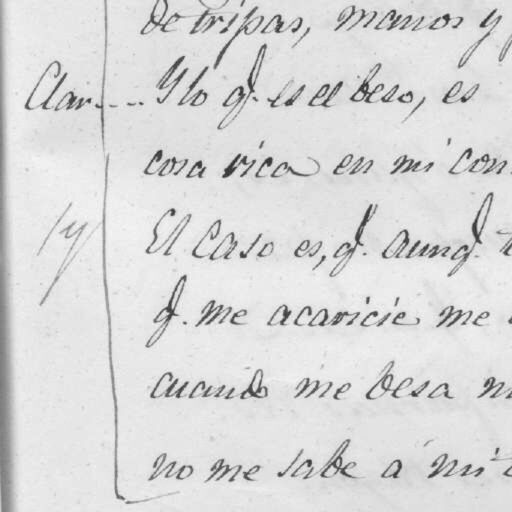 de tripas, manos y
Clar.... Y lo q.̃ es el beso, es
cosa rica en mi con
El caso es, q.̃ aunq.̃ t
q.̃ me acaricie me
cuando me besa m
no me sabe á mi t